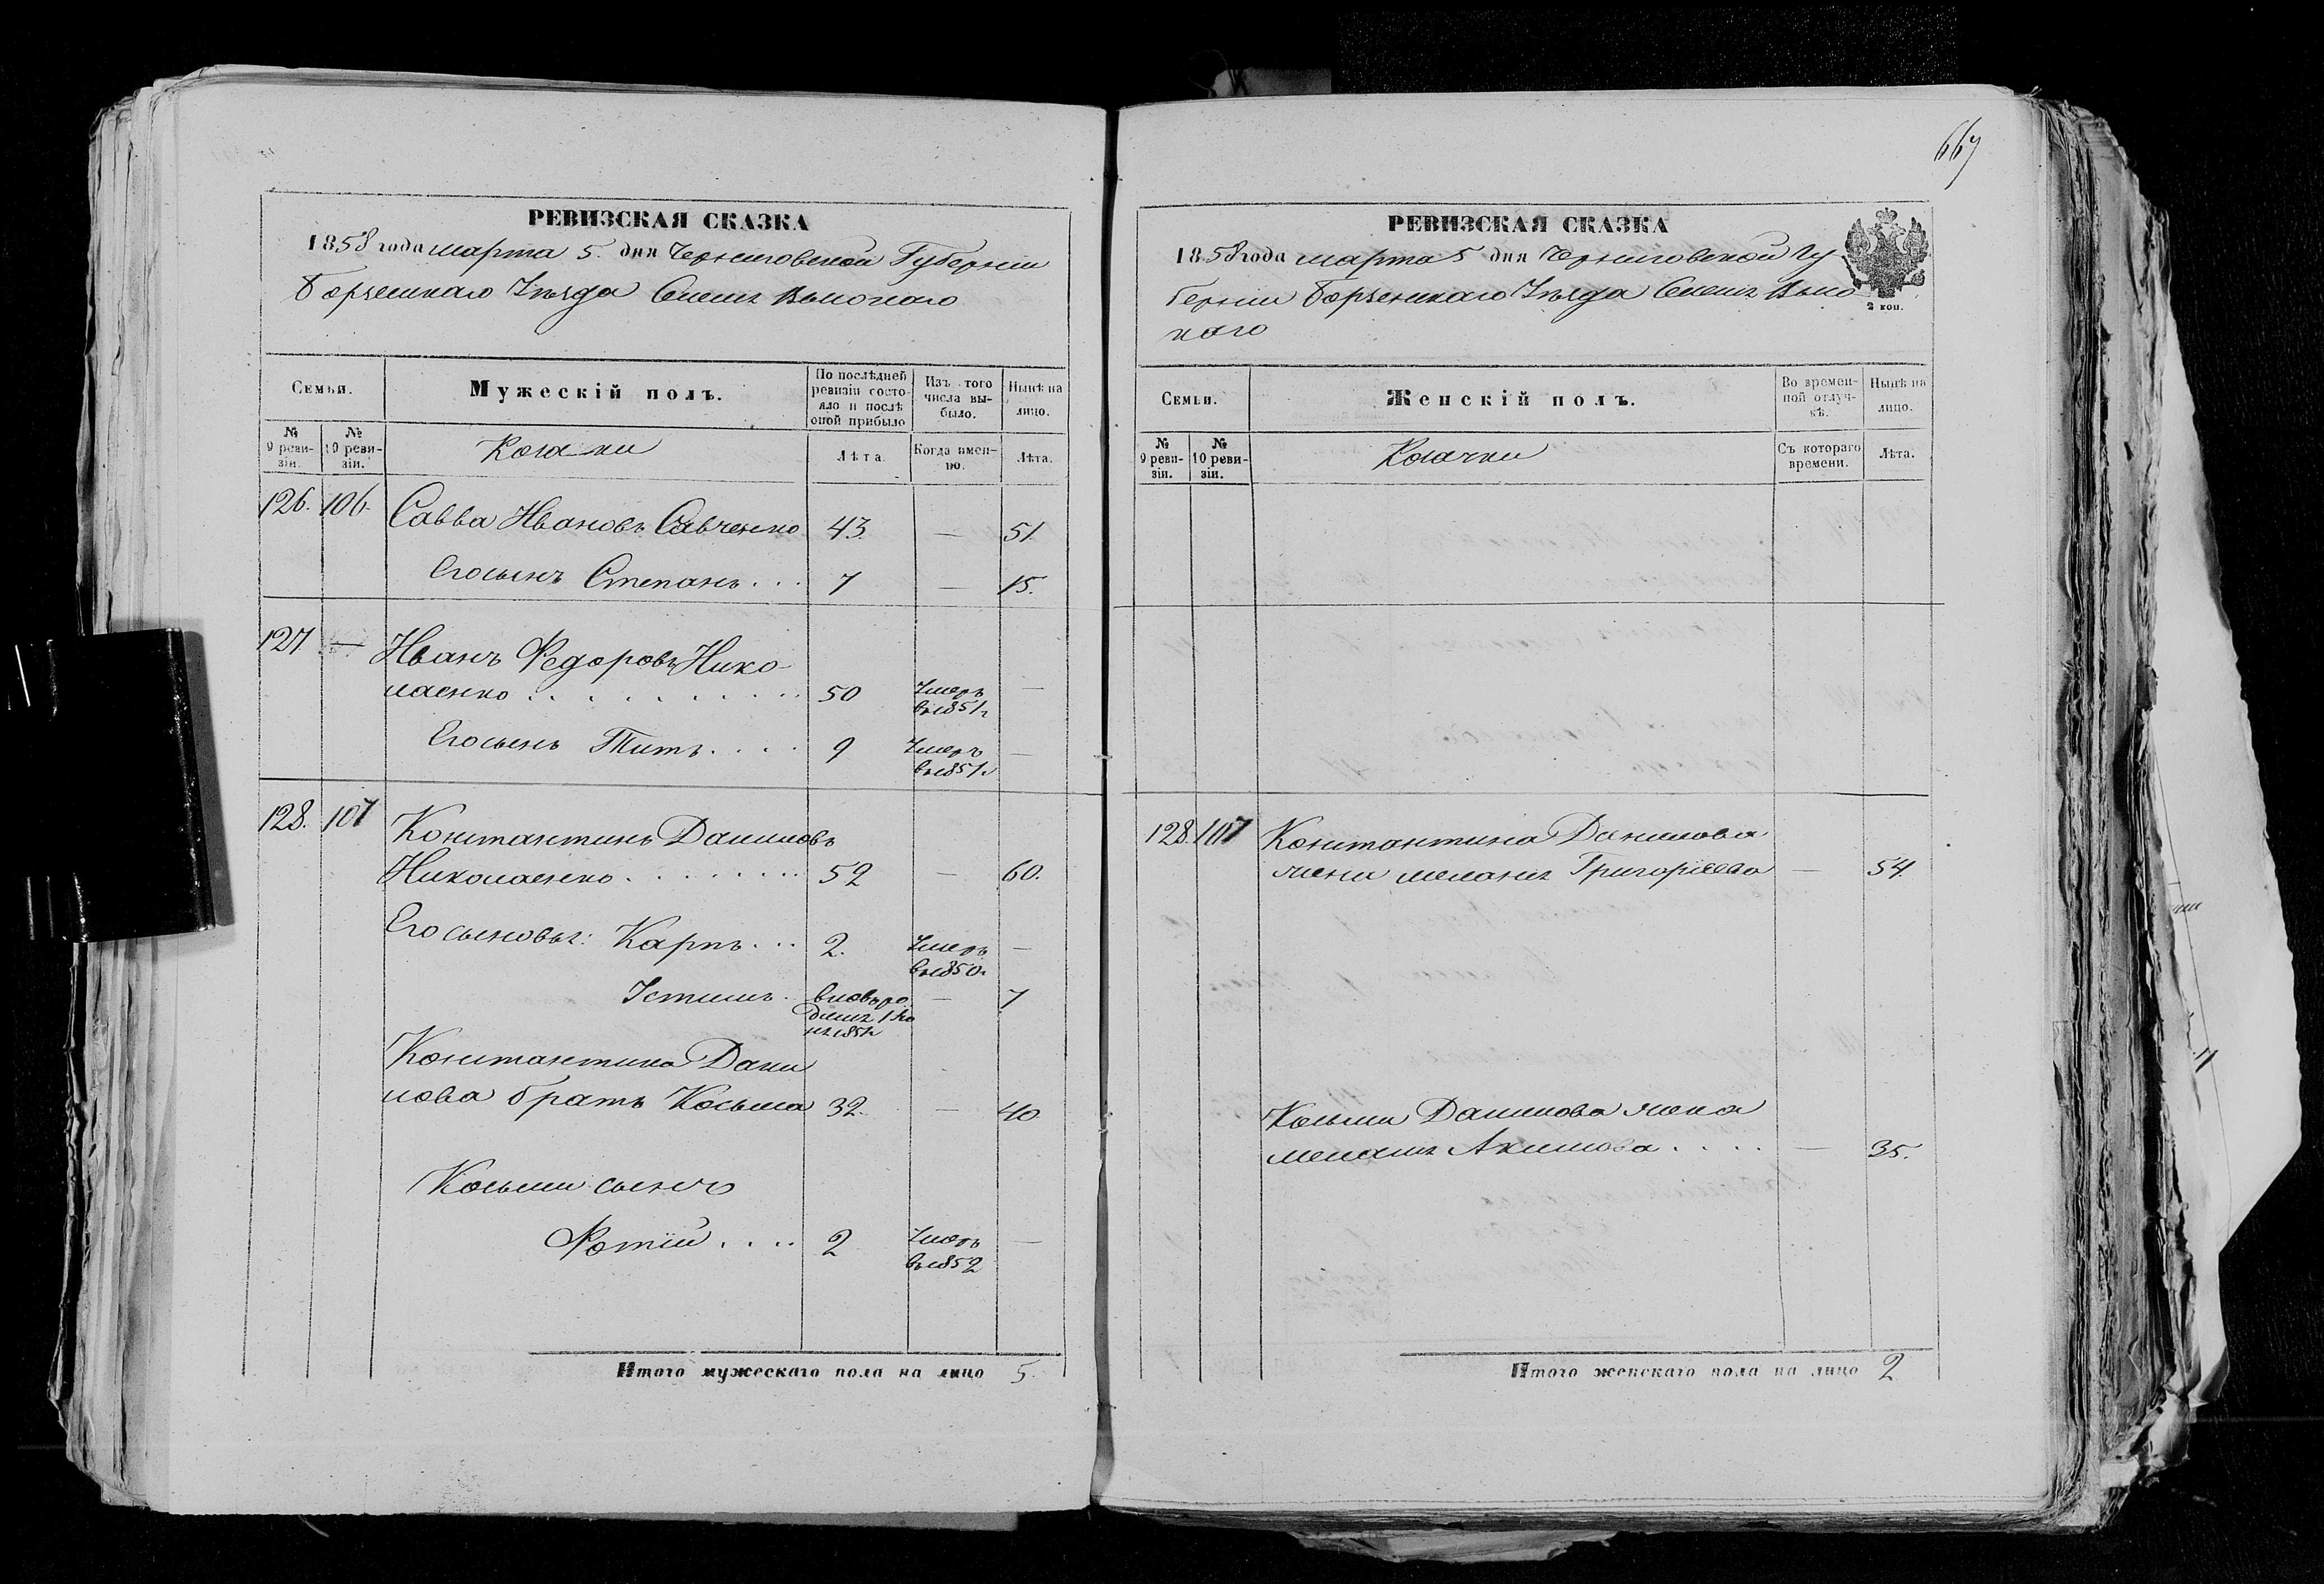 667
РЕВИЗСКАЯ СКАЗКА
1858 года марта 5. дня Черниговской Губернии
Борзенскаго Уѣзда
Семьи.
Мужескій полъ.
По послѣдней ревизіи состояло и послѣ оной прибыло
Изъ того числа выбыло.
Нынѣ на лицо.
№ 9 ревизіи.
№ 10 ревизіи.
Козаки
Лѣта
Когда именно.
Лѣта.
126. 106. Савва Ивановъ Савченко 43. — 51.
Его сынъ Степанъ . . . 7 — 15.
127 — Иванъ Федоровъ Нико-
лаенко . . . . . . . . . 50 Умеръ въ 1851г —
Его сынъ Титъ . . . . 9 Умеръ въ 1851г —
128. 107 Константинъ Даниловъ
Николаенко . . . . . . . . 52 — 60.
Его сыновья: Карпъ . . . 2. Умеръ въ 1850г —
Устинъ . вновьро — 7
Константина Дани
лова братъ Козьма 32. — 40
Козьми сынъ
Фотій . . . . 2 Умеръ въ 1852 —
Итого мужескаго пола на лицо 5.
РЕВИЗСКАЯ СКАЗКА
1858 года марта 5 дня Черниговской Гу-
берніи Борзенскаго Уѣзда
2 коп.
Семьи.
Женскій полъ.
Во временной отлучкѣ.
Нынѣ на лицо.
№ 9 ревизіи.
№ 10 ревизіи.
Козачки
Съ котораго времени.
Лѣта.
128. 107 Константина Данилова
жена Григоріева — 54.
Козьми Данилова жена
Акимова . . . . — 35.
Итого женскаго пола на лицо 2